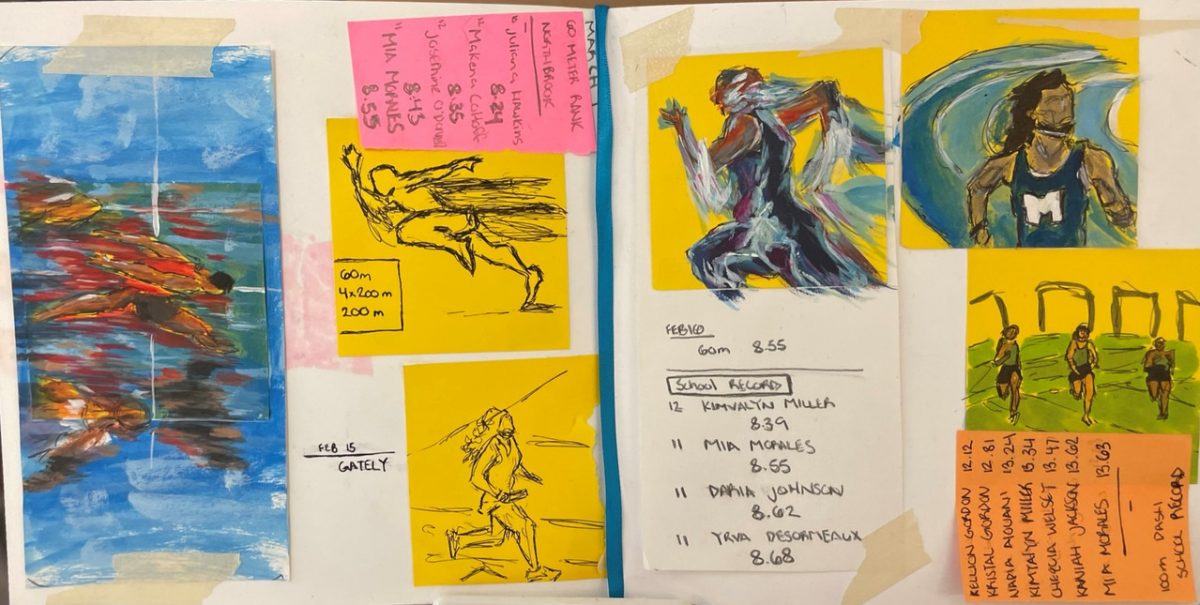 MARCH 1
60 METER RANK
NORTHBROOK
10 Juliana Hawkins
8.24
12 Makena
8.35
12 Josephine
8.43
11 MIA MORALES
8.55
60m
4x200m
200m
FEB 15
GATELY
M
FEB
60m 8.55
School RECORD
12 KIMVALYN MILLER
8.39
11 MIA MORALES
8.55
11 DARIA JOHNSON
8.62
11 YRVA DESORMEAUX
8.68
100m DASH
SCHOOL RECORD
MIA MORALES 13.63
KANIAH JACKSON 13.62
13.47
MILLER 13.34
13.24
KRISTAL GORDON 12.81
GORDON 12.12